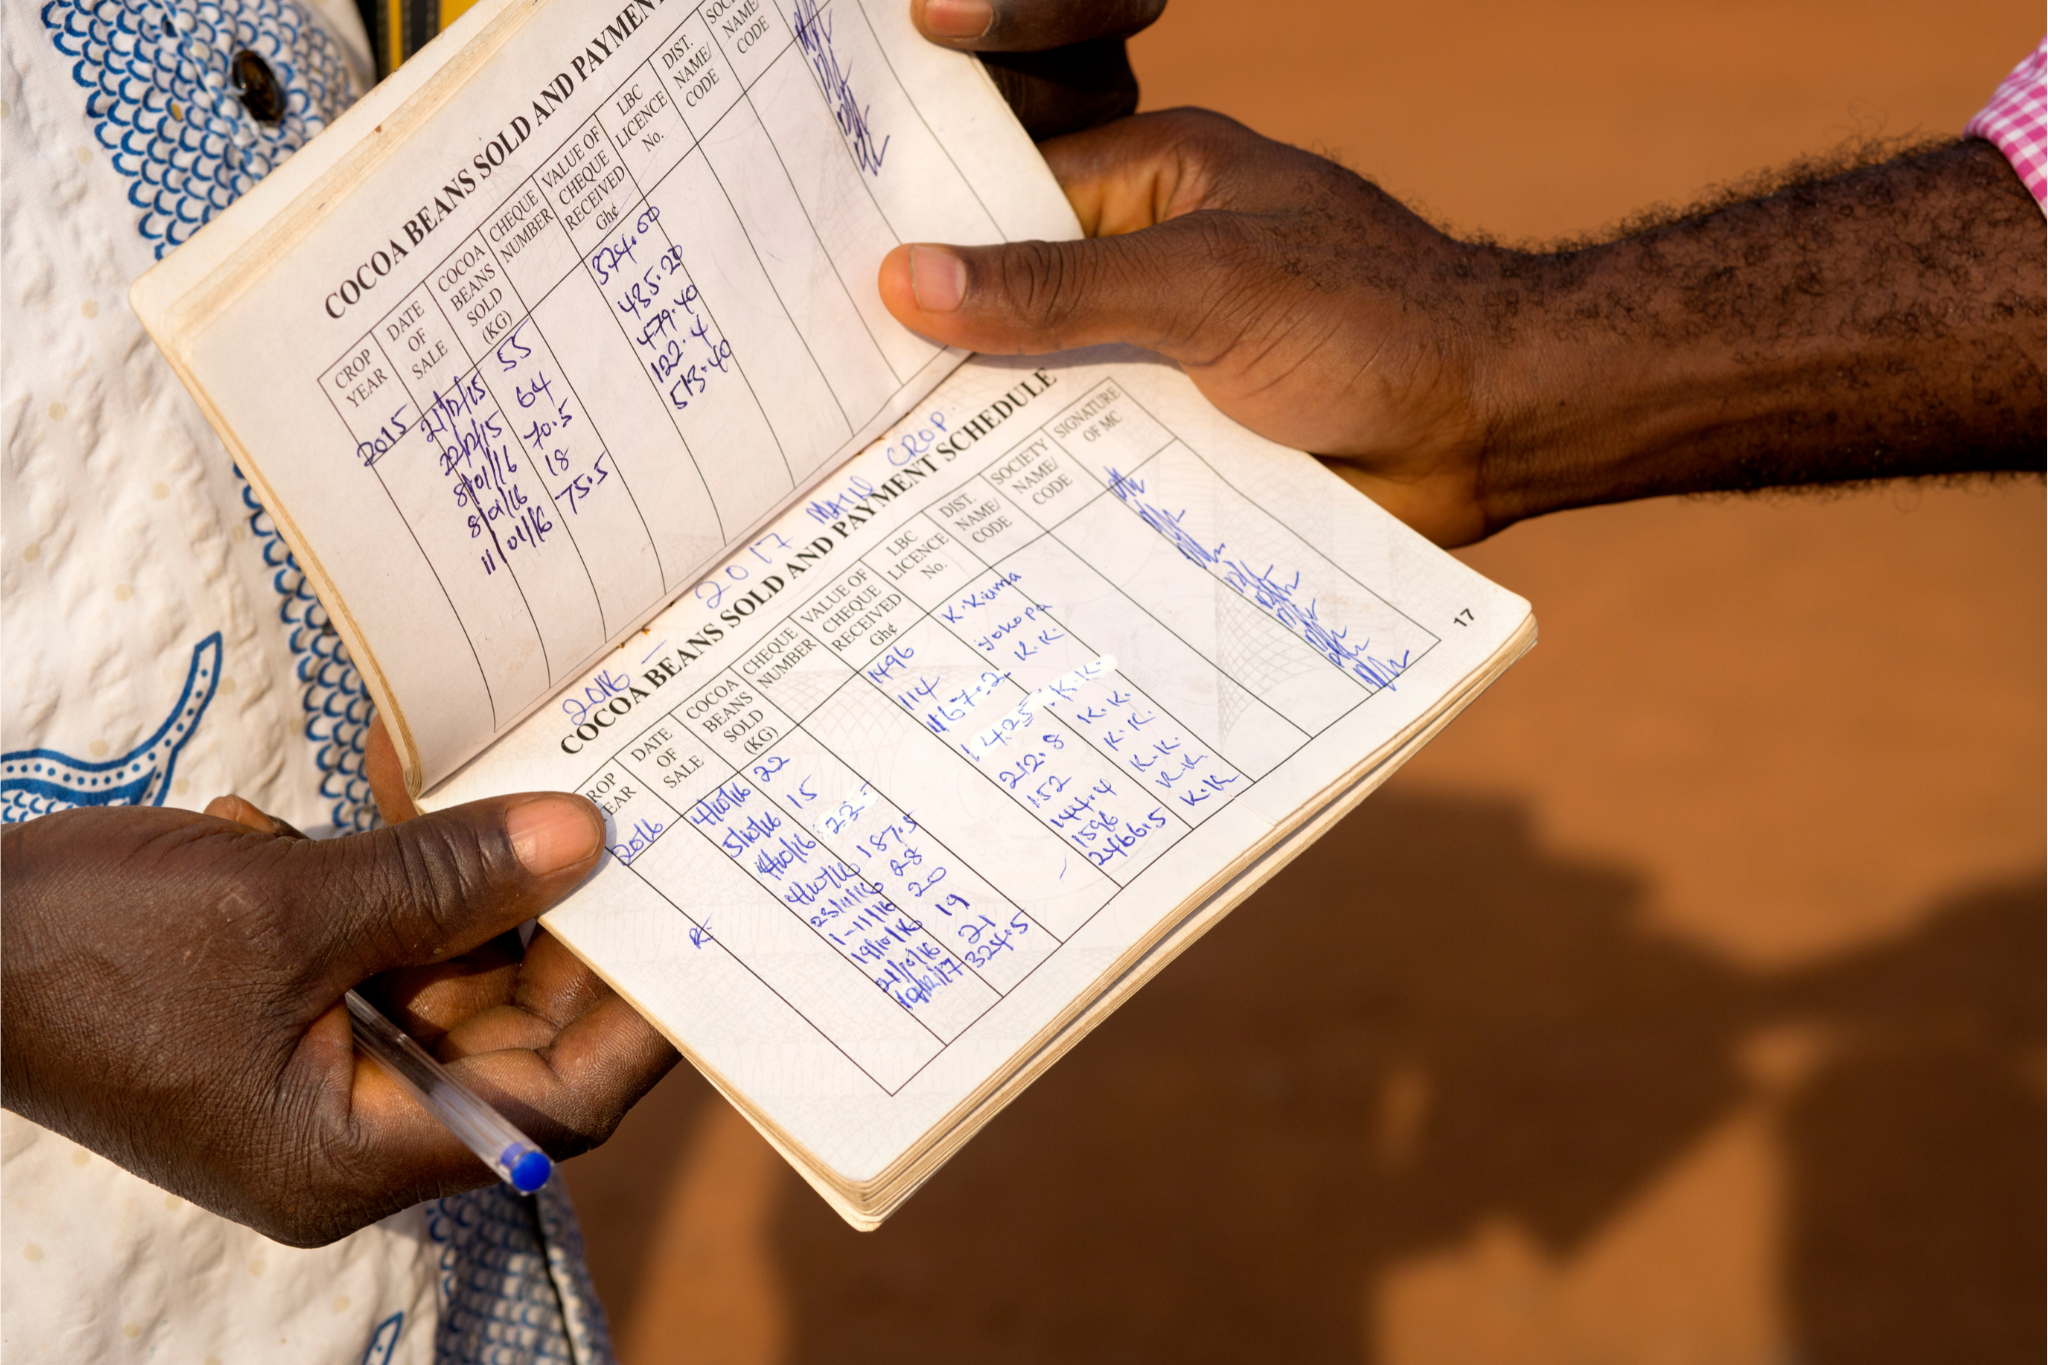 COCOA BEANS SOLD AND PAYMENT
CROP YEAR DATE OF SALE COCOA BEANS SOLD (KG) CHEQUE NUMBER VALUE OF CHEQUE RECEIVED Gh¢ LBC LICENCE No. DIST. NAME/ CODE NAME/ CODE
2015 21/12/15 55 374.00
22/12/15 64 435.20
8/01/16 70.5 479.40
8/01/16 18 122.4
11/01/16 75.5 513.40
2016 - 2017 MAIN CROP.
COCOA BEANS SOLD AND PAYMENT SCHEDULE
DATE OF SALE COCOA BEANS SOLD (KG) CHEQUE NUMBER VALUE OF CHEQUE RECEIVED Gh¢ LBC LICENCE No. DIST. NAME/ CODE SOCIETY NAME/ CODE SIGNATURE OF MC
2016 4/10/16 22 1496 K.Kuma
5/10/16 15 114 yokopa
23. 167.2 K.K.
4/10/16 187.5 1425. K.K.
23/11/16 28 212.8 K.K.
1-11/16 20 152 K.K.
19/10/16 19 144.4 K.K.
21/10/16 21 1596 K.K.
R. 19/12/17 324.5 2466.5 K.K
17